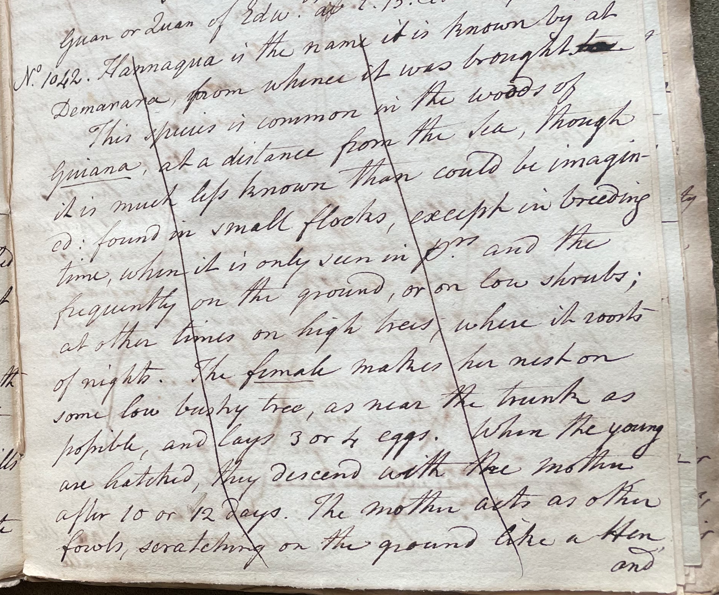 Guan or Quan of Edw.
No. 1042. Hannaqua is the name it is known by at
Demarara, from whence it was brought
This species is common in the woods of
Guiana, at a distance from the Sea, though
it is much less known than could be imagin-
ed: found in small flocks, except in breeding
time, when it is only seen in prs and the
frequently on the ground, or on low shrubs;
at other times on high trees, where it roosts
of nights. The female makes her nest on
some low bushy tree, as near the trunk as
possible, and lays 3 or 4 eggs. When the young
are hatched, they descend with the mother
after 10 or 12 days. The mother acts as other
fowls, scratching on the ground like a Hen,
and